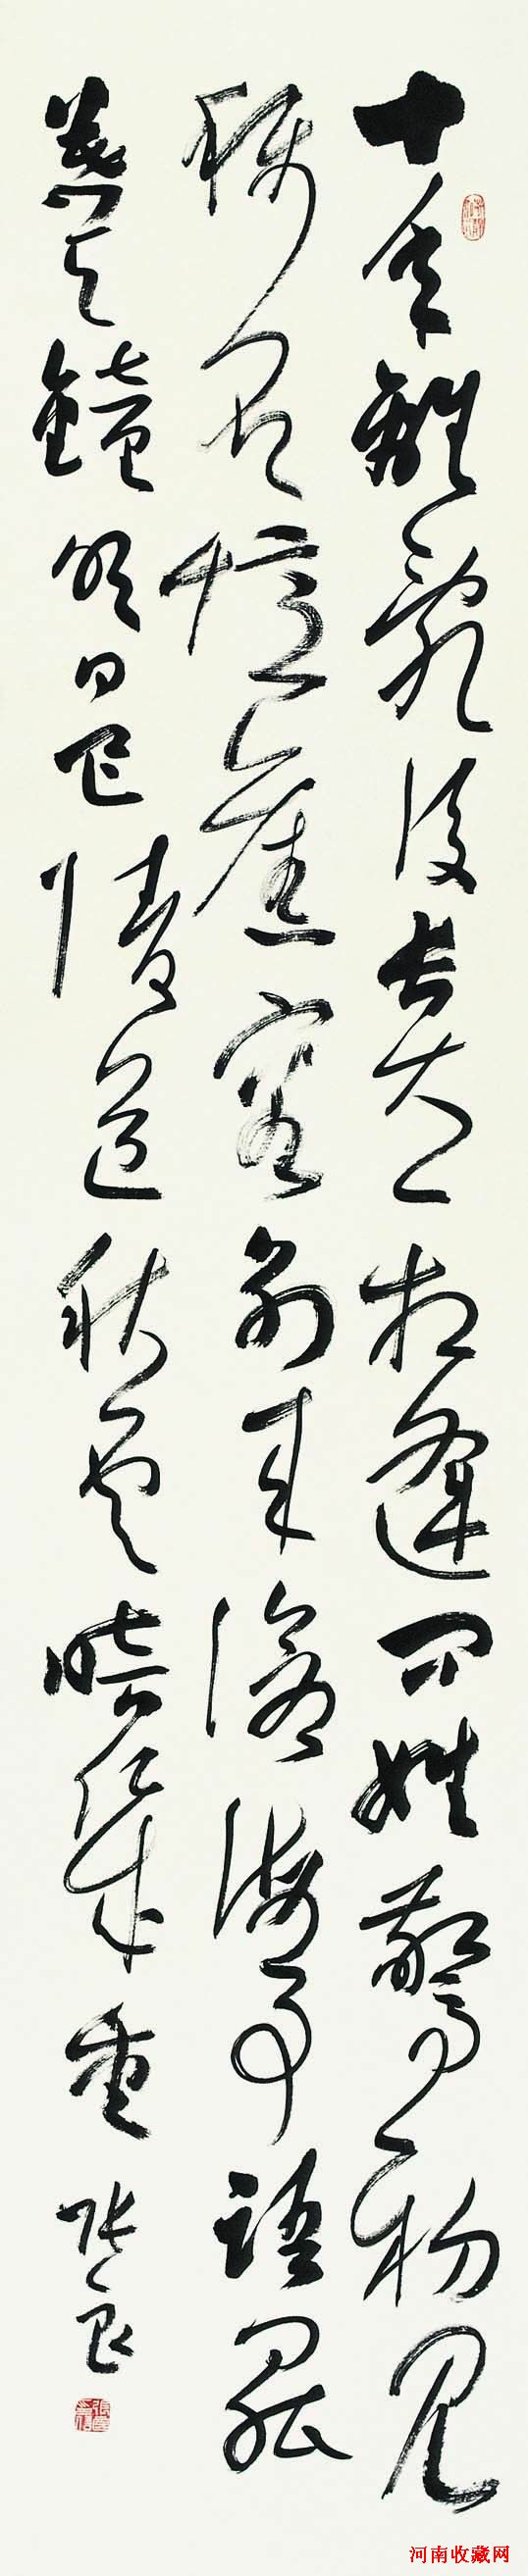 十年離亂後長大一相逢問姓驚初見
稱名憶舊容別來滄海事語罷
暮天鐘明日巴陵道秋幾重 張良
河南收藏网